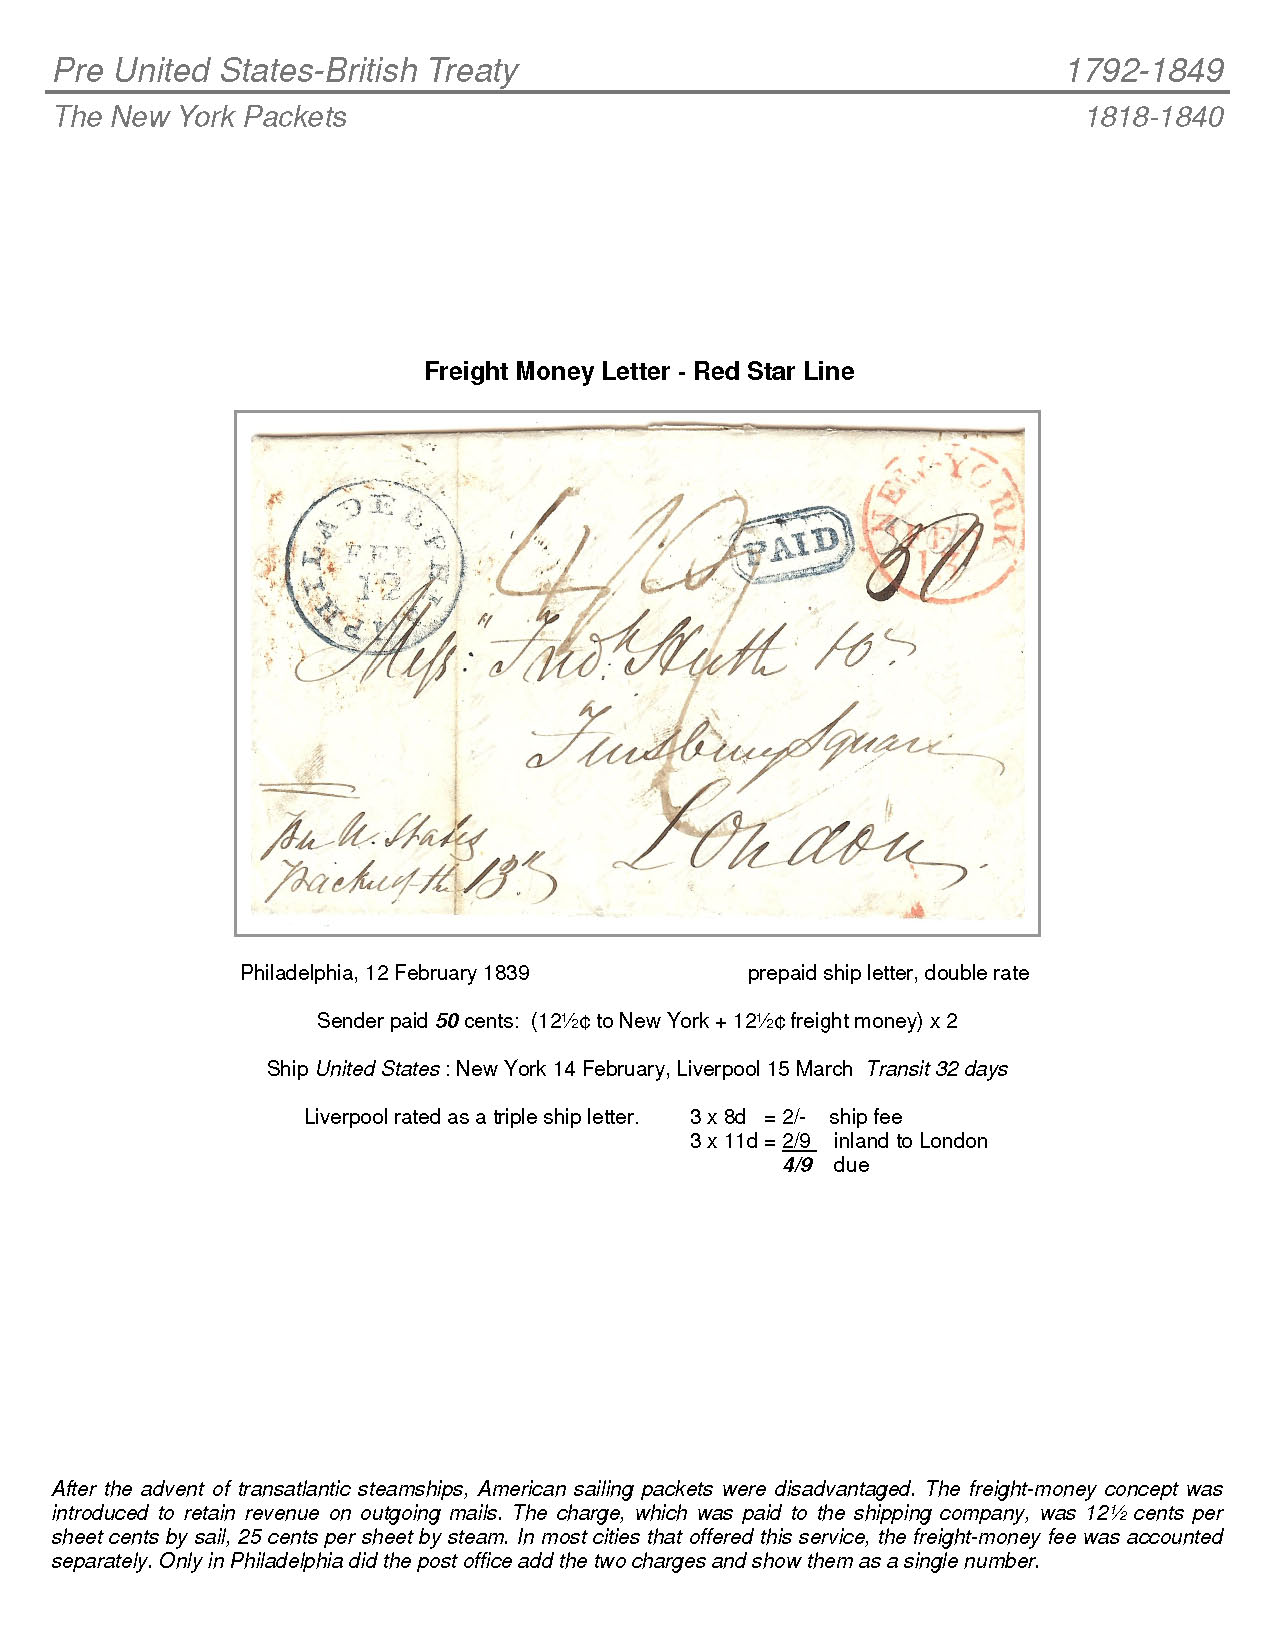 Pre United States-British Treaty 1792-1849
The New York Packets 1818-1840
Freight Money Letter - Red Star Line
PHILADELPHIA
FEB
12
4/9
PAID
NEW-YORK
50
Mess.rs Fred.k Huth & Co.
Finsbury Square
London.
Per U. States
Packet of the 13.th
Philadelphia, 12 February 1839 prepaid ship letter, double rate
Sender paid 50 cents: (12½¢ to New York + 12½¢ freight money) x 2
Ship United States : New York 14 February, Liverpool 15 March Transit 32 days
Liverpool rated as a triple ship letter. 3 x 8d = 2/- ship fee
3 x 11d = 2/9 inland to London
4/9 due
After the advent of transatlantic steamships, American sailing packets were disadvantaged. The freight-money concept was
introduced to retain revenue on outgoing mails. The charge, which was paid to the shipping company, was 12½ cents per
sheet cents by sail, 25 cents per sheet by steam. In most cities that offered this service, the freight-money fee was accounted
separately. Only in Philadelphia did the post office add the two charges and show them as a single number.